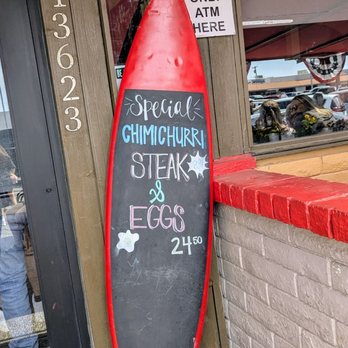 13623
ATM
HERE
Special
CHIMICHURRI
STEAK
&
EGGS
24.50